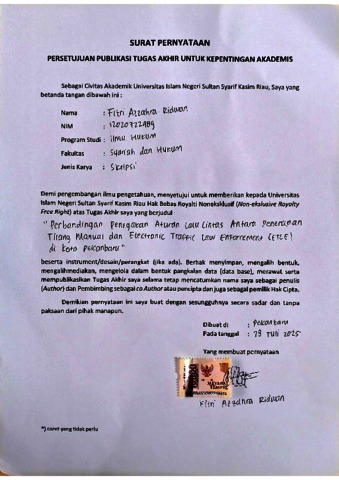 SURAT PERNYATAAN
PERSETUJUAN PUBLIKASI TUGAS AKHIR UNTUK KEPENTINGAN AKADEMIS
Sebagai Civitas Akademik Universitas Islam Negeri Sultan Syarif Kasim Riau, Saya yang
betanda tangan dibawah ini :
Nama : Fitri Azzahra Ridwan
NIM : 12020722989
Program Studi : Ilmu Hukum
Fakultas : Syariah dan Hukum
Jenis Karya : Skripsi
Demi pengembangan ilmu pengetahuan, menyetujui untuk memberikan kepada Universitas
Islam Negeri Sultan Syarif Kasim Riau Hak Bebas Royalti Noneksklusif (Non-ekslusive Royalty
Free Right) atas Tugas Akhir saya yang berjudul
" Perbandingan Penegakan Aturan Lalu Lintas Antara Penerapan
Tilang Manual dan Electronic Traffic Law Enforcement (ETLE)
di Kota Pekanbaru "
beserta instrument/desain/perangkat (jika ada). Berhak menyimpan, mengalih bentuk,
mengalihmediakan, mengelola dalam bentuk pangkalan data (data base), merawat serta
mempublikasikan Tugas Akhir saya selama tetap mencatumkan nama saya sebagai penulis
(Author) dan Pembimbing sebagai co Author atau pencipta dan juga sebagai pemilik Hak Cipta.
Demikian pernyataan ini saya buat dengan sesungguhnya secara sadar dan tanpa
paksaan dari pihak manapun.
Dibuat di : Pekanbaru
Pada tanggal : 29 Juli 2025
Yang membuat pernyataan
Fitri Azzahra Ridwan
*) coret yang tidak perlu